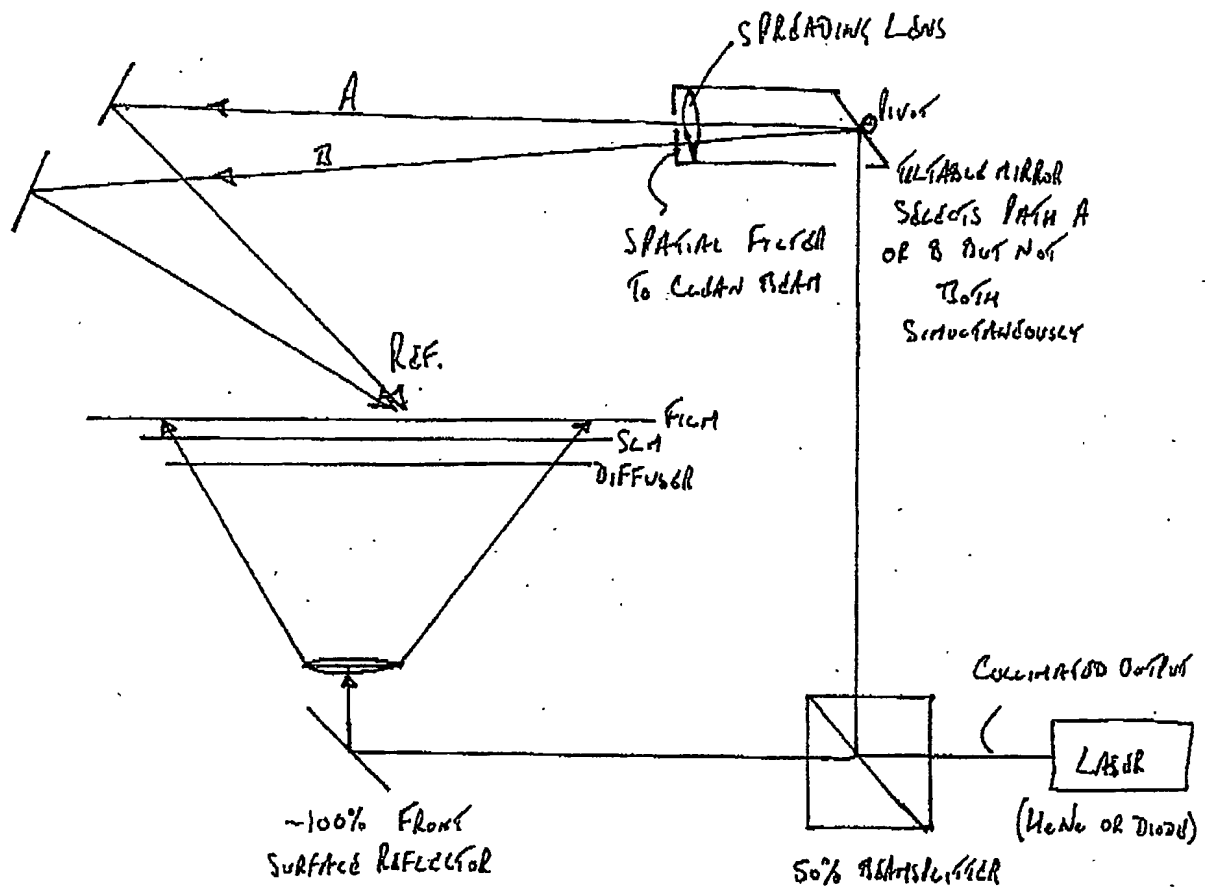 SPREADING LENS
A
PIVOT
B
TILTABLE MIRROR
SELECTS PATH A
OR B BUT NOT
BOTH
SIMULTANEOUSLY
SPATIAL FILTER
TO CLEAN BEAM
REF.
FILM
SLM
DIFFUSER
COLLIMATED OUTPUT
LASER
(HeNe OR DIODE)
~100% FRONT
SURFACE REFLECTOR
50% BEAMSPLITTER